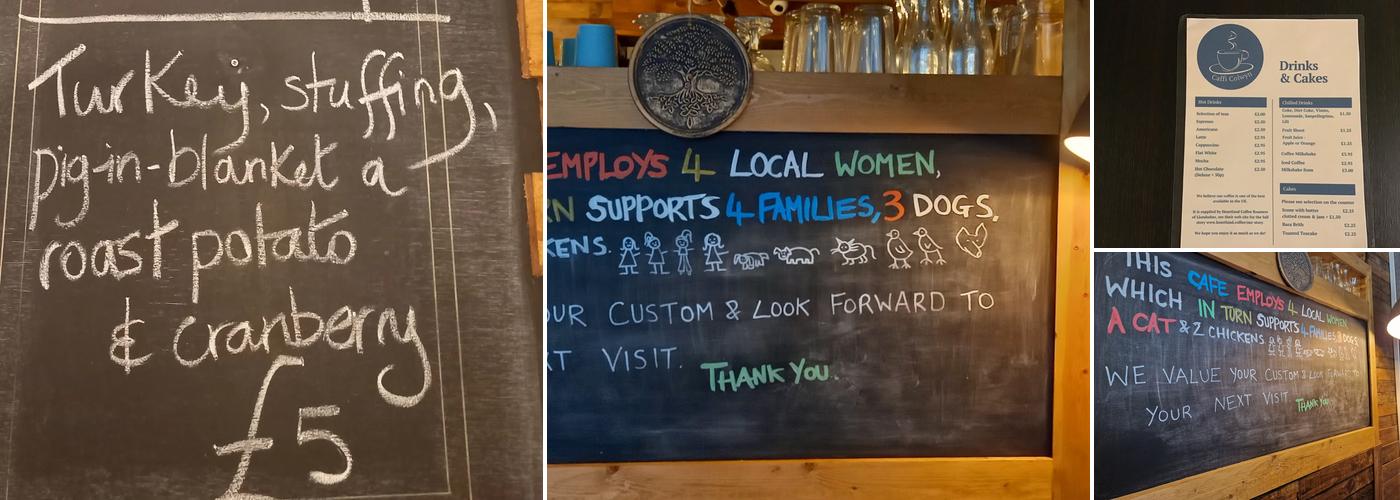 Turkey, stuffing,
pig-in-blanket a
roast potato
& cranberry
£5
EMPLOYS 4 LOCAL WOMEN,
RN SUPPORTS 4 FAMILIES, 3 DOGS,
KENS.
OUR CUSTOM & LOOK FORWARD TO
XT VISIT. THANK YOU.
Caffi Colwyn
Drinks
& Cakes
Hot Drinks
Selection of teas £2.00
Espresso £2.50
Americano £2.50
Latte £2.95
Cappuccino £2.95
Flat White £2.95
Mocha £2.95
Hot Chocolate £2.50
(Deluxe + 50p)
We believe our coffee is one of the best
available in the UK.
It is supplied by Heartland Coffee Roasters
of Llandudno, see their web site for the full
story www.heartland.coffee/our-story
We hope you enjoy it as much as we do!
Chilled Drinks
Coke, Diet Coke, Vimto, £1.50
Lemonade, Sanpellegrino,
Fruit Shoot £1.25
Fruit Juice -
Apple or Orange £1.25
Coffee Milkshake £3.95
Iced Coffee £2.95
Milkshake from £3.00
Cakes
Please see selection on the counter
Scone with butter £2.25
clotted cream & jam + £1.50
Bara Brith £2.25
Toasted Teacake £2.25
THIS CAFE EMPLOYS 4 LOCAL WOMEN
WHICH IN TURN SUPPORTS 4 FAMILIES, 3 DOGS
A CAT & 2 CHICKENS
WE VALUE YOUR CUSTOM & LOOK FORWARD TO
YOUR NEXT VISIT THANK YOU